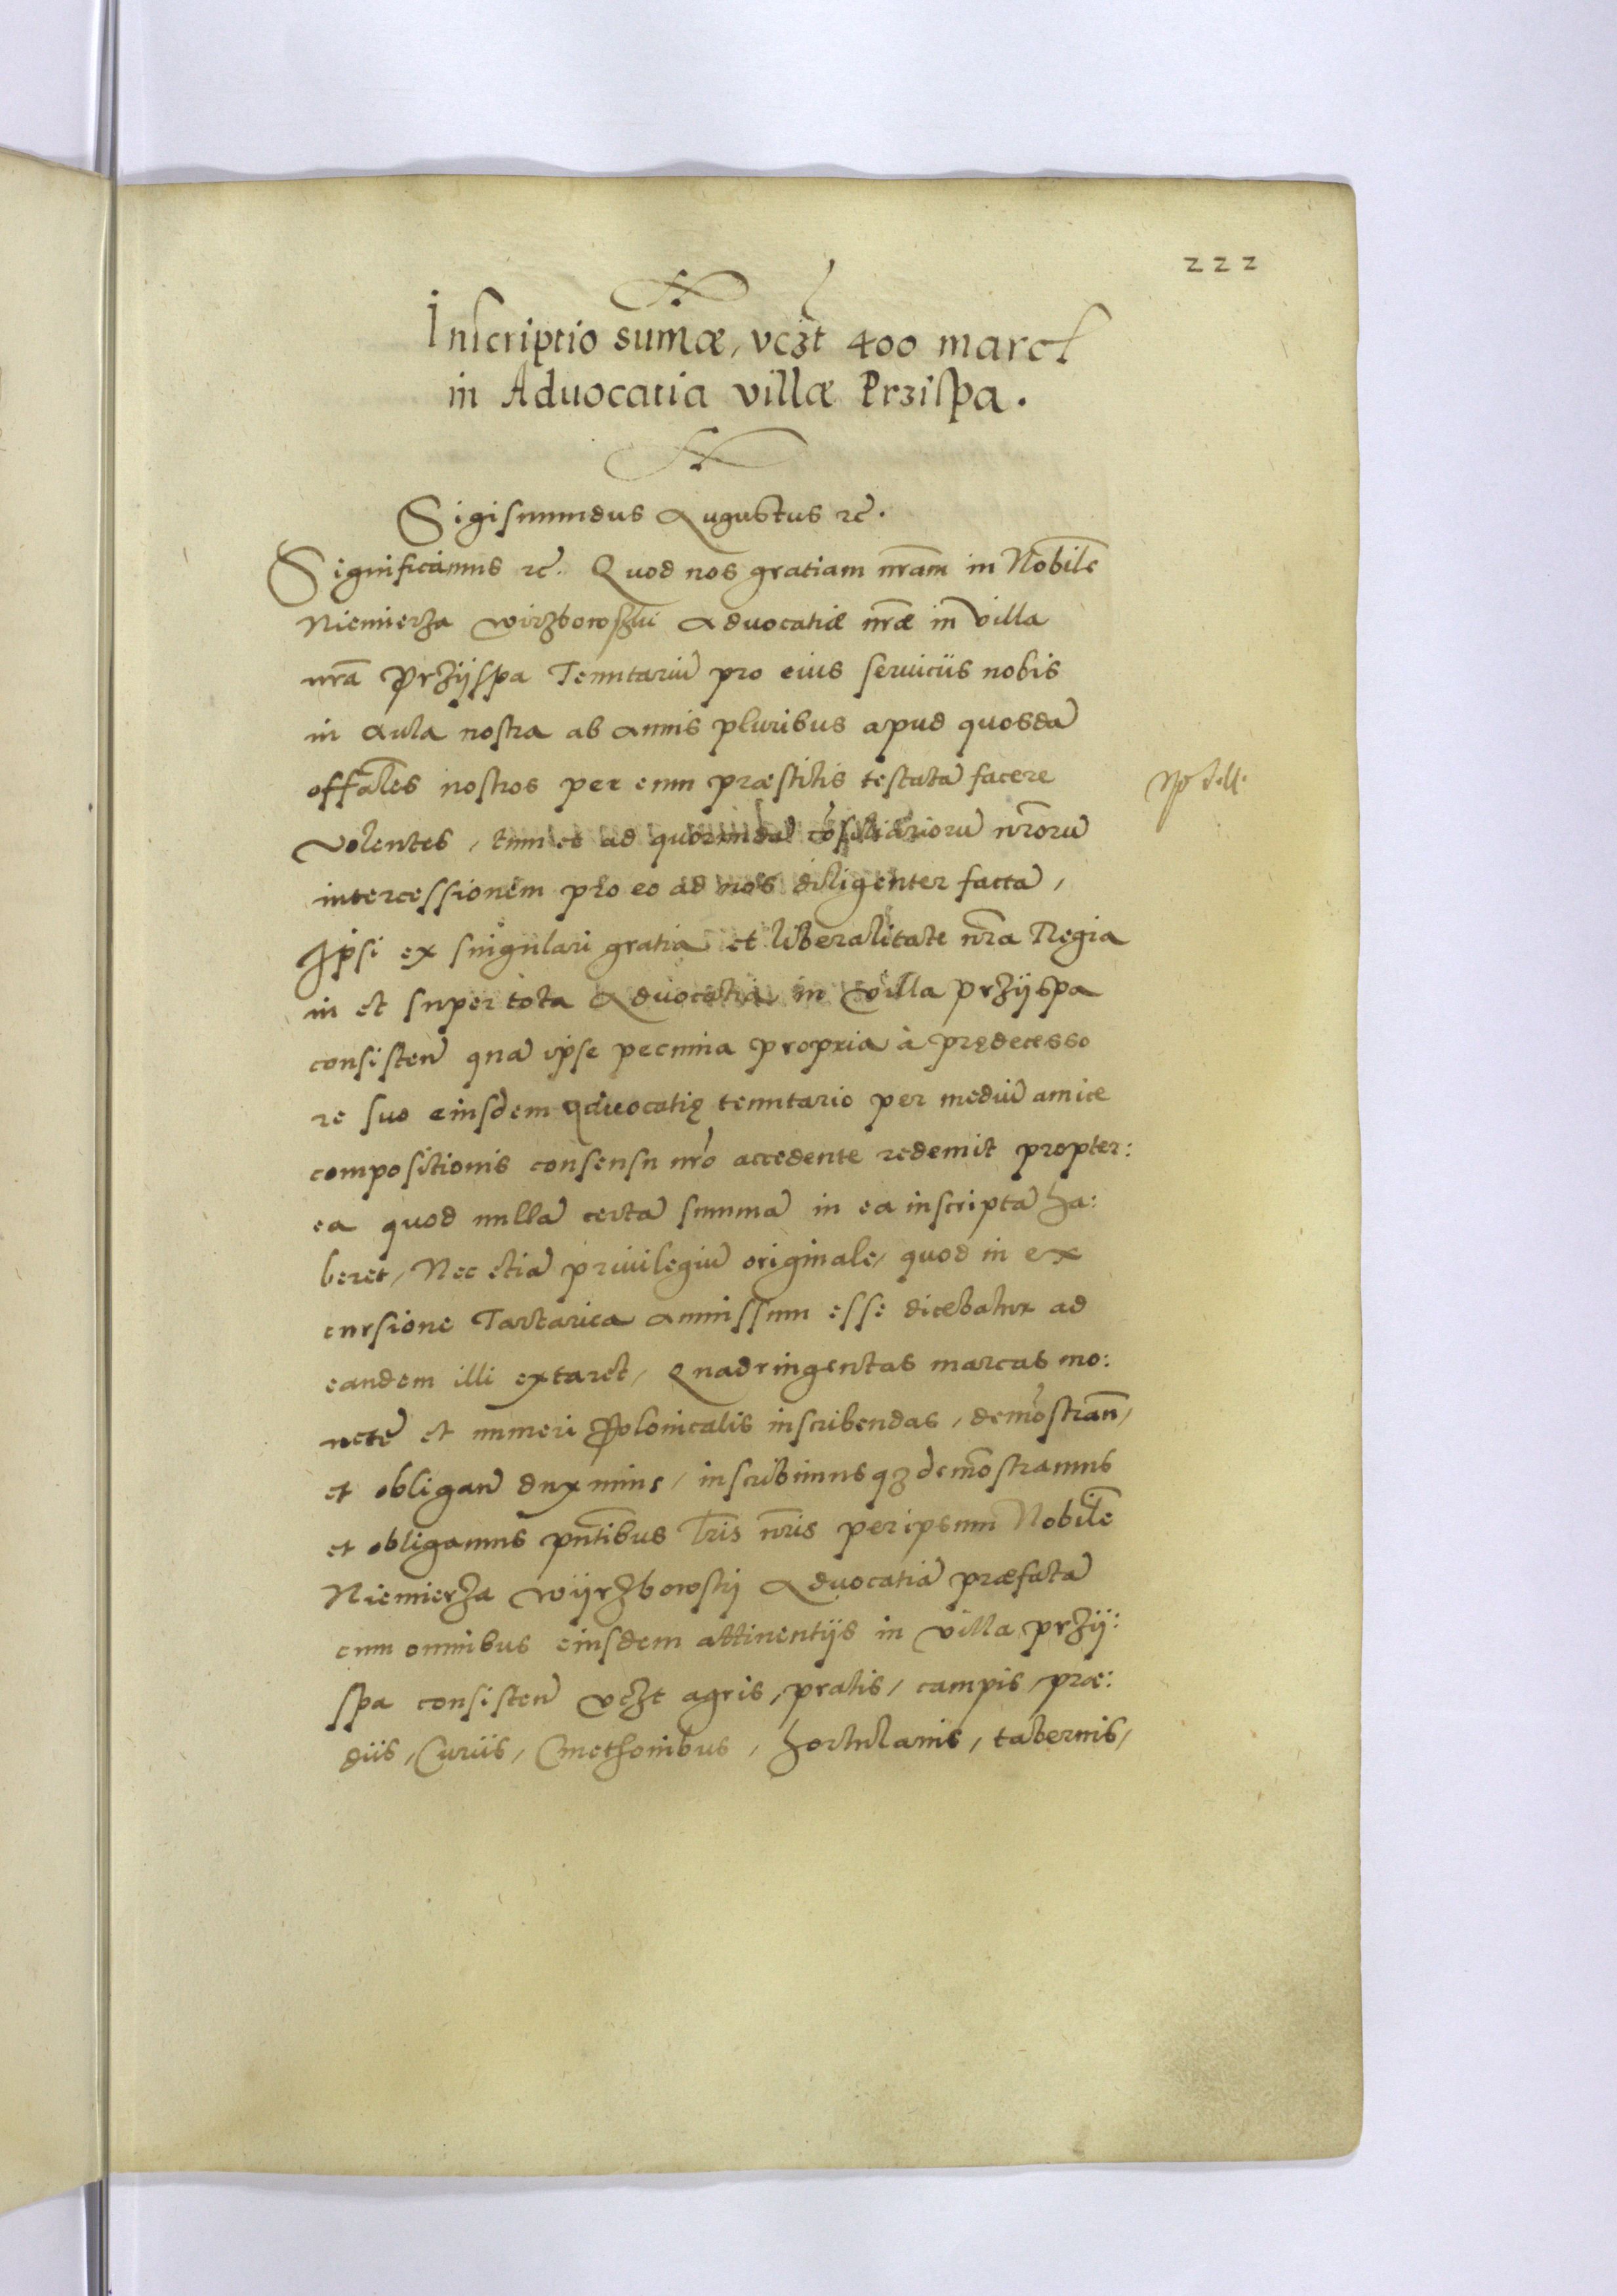 222
Inscriptio sum̄æ, vcꝫt 400 marcꝭ
in Aduocatia villæ Przispa.
Sigismundus Augustus ⁊c̄.
Significamus ⁊c̄. Quod nos gratiam nr̄am in Nobilē
Niemierza Wirzbowskii Aduocatiæ nr̄æ in villa
nr̄a Przÿspa Tenutariū pro eius seruiciis nobis
in Aula nostra ab annis pluribus apud quosdā
offāles nostros per eum præstitis testatā facere
volentes, tum et ad quorundā cōsiliariorū nr̄orū
intercessionem pro eo ad nos diligenter factā,
Ipsi ex singulari gratia et liberalitate nr̄a Regia
in et super tota Aduocatia in villa przÿspa
consisteñ quā ipse pecunia propria à prędecesso
re suo eiusdem Aduocatię tenutario per mediū amice
compositionis consensu nr̄o accedente redemit propter:
ea quod nullā certā summā in ea inscriptā ha:
beret, Nec etiā priuilegiū originale, quod in ex
cursione Tartarica amissum esse dicebatur ad
eandem illi extaret, Quadringentas marcas mo:
netē et numeri Polonicalis inscribendas, demōstrañ,
et obligañ duximus, inscribimusqꝫ demōstramus
et obligamus pn̄tibus lr̄is nr̄is per ipsum Nobilē
Niemierza Wÿrzbowskÿ Aduocatiā præfatā
cum omnibus eiusdem attinentijs in villa przÿ:
spa consisteñ vcꝫt agris, pratis, campis, præ:
diis, Curiis, Cmethonibus, hortulanis, tabernis,